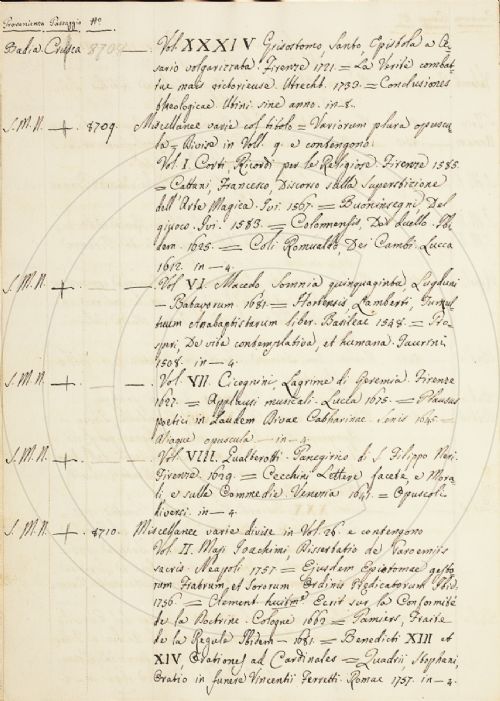 Provenienza Passaggio Nº
Badia Crusca 8708 — Vol. XXXIV Grisostomo, Santo, Epistola a Ce-
sario volgarizzata. Firenze 1721. = La Verité combat-
tue mais victorieuse. Utrecht. 1733. = Conclusiones
theologicae. Urbini sine anno. in-8.
S. M. N. + 8709. Miscellanee varie col titolo = Variorum plura opuscu-
la = Divise in Voll. 9. e contengono.
Vol. I. Conti Ricordi per le Religiose. Firenze 1585.
= Cattani, Francesco, Discorso sulla Superstizione
dell'Arte Magica. Ivi. 1567. = Buoninsegni, Del
giuoco. Ivi. 1583. = Colonnensis, Del duello.
1625. = Coli Romualdo, Dei Cambi. Lucca
1612. in-4.
S. M. N. + — Vol. VI. Macedo Somnia quinquaginta. Lugduni
- Batavorum 1681. = Hortensis, Lamberti, Tumul-
tuum Anabaptistarum liber. Basileae 1548. = Pro-
speri, De vita contemplativa, et humana. Taurini
1508. in-4.
S. M. N. + — Vol. VII. Cicognini, Lagrime di Geremia. Firenze
1627. = Applausi musicali. Lucca 1675. = Plausus
poetici in Laudem Divae Catharinae. Senis 1645. =
Aliaque opuscula — in-4.
S. M. N. + — Vol. VIII. Gualterotti. Panegirico di S. Filippo Neri.
Firenze. 1629. = Cecchini Lettere facete, e Mora-
li, e sulle Commedie. Venezia 1647. = Opuscoli
diversi. in-4.
S. M. N. + 8710. Miscellanee varie divise in Vol. 26. e contengono
Vol. II. Maji Joachini, Dissertatio de
sacris. Neapoli 1757 = Ejusdem Epistomae gesto-
rum Fratrum, et Sororum Ordinis Predicatorum Ibid.
1756. = Clement huitme. Ecrit sur la Conformité
de la Doctrine. Cologne 1662. = Tamsers, Traite
de la Regule Ibidem - 1681. = Benedicti XIII et
XIV Orationes ad Cardinales = Quadrii, Stephani,
Oratio in funere Vincentii Ferretti. Romae 1757. in-4.